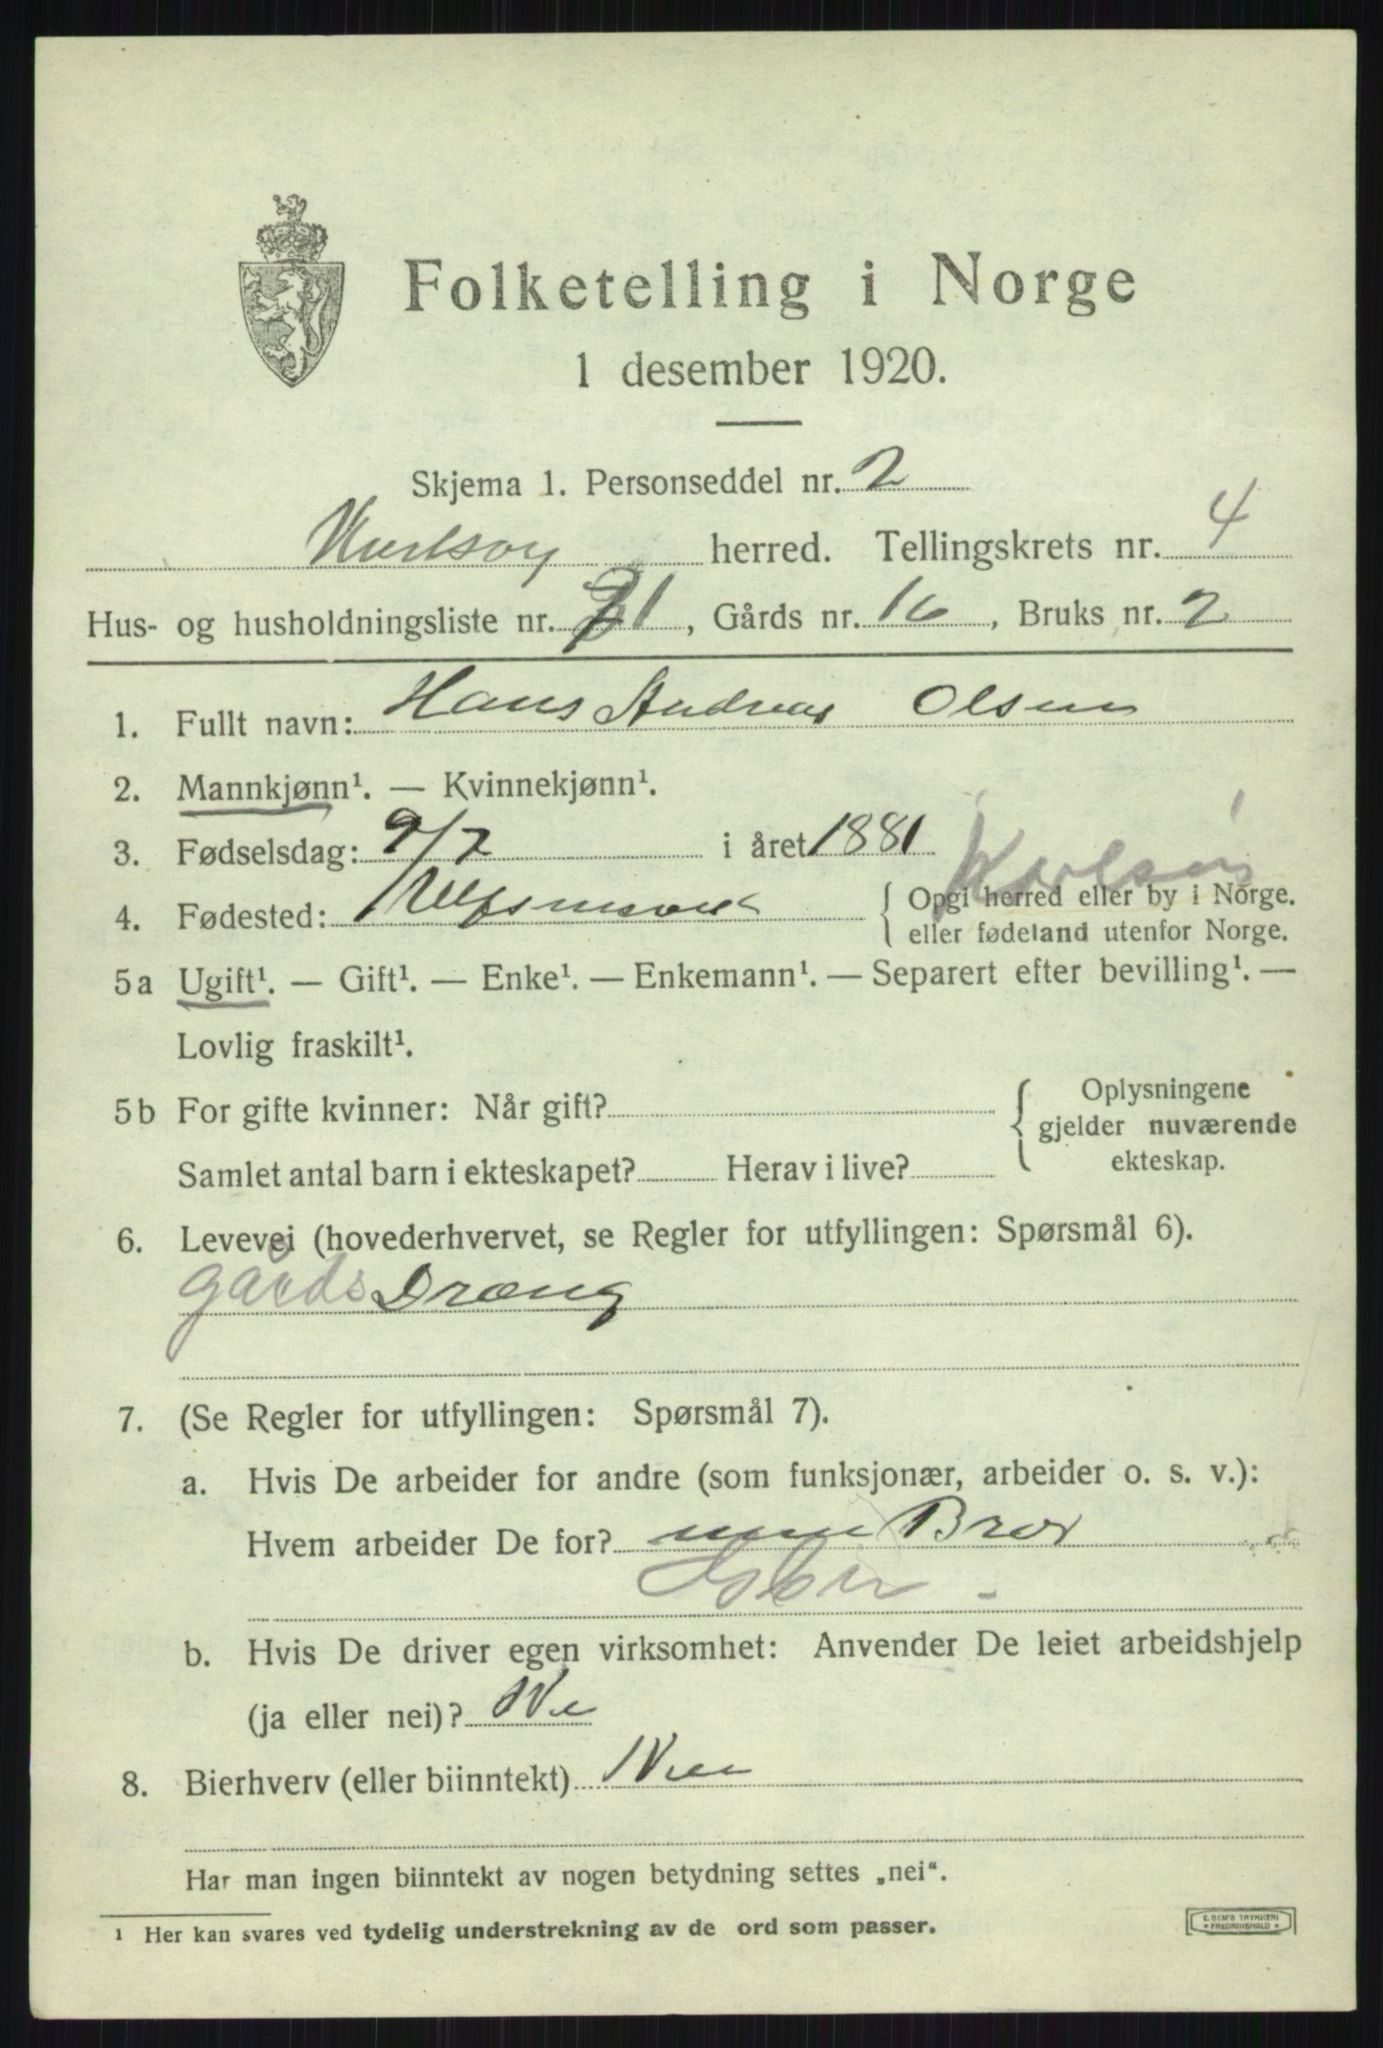 Folketelling i Norge
1 desember 1920.
Skjema 1. Personseddel nr. 2
Karlsøy herred. Tellingskrets nr. 4
Hus- og husholdningsliste nr. 21, Gårds nr. 16, Bruks nr. 2
1. Fullt navn: Hans Andreas Olsen
2. Mannkjønn¹. — Kvinnekjønn¹.
3. Fødselsdag: 9/7 i året 1881
Karlsøi
4. Fødested: { Opgi herred eller by i Norge.
eller fødeland utenfor Norge.
5a Ugift¹. — Gift¹. — Enke¹. — Enkemann¹. — Separert efter bevilling¹. —
Lovlig fraskilt¹.
5b For gifte kvinner: Når gift? { Oplysningene
gjelder nuværende
Samlet antal barn i ekteskapet? Herav i live? ekteskap.
6. Levevei (hovederhvervet, se Regler for utfyllingen: Spørsmål 6).
gårds Dræng
7. (Se Regler for utfyllingen: Spørsmål 7).
a. Hvis De arbeider for andre (som funksjonær, arbeider o. s. v.):
Hvem arbeider De for? min Bror
b. Hvis De driver egen virksomhet: Anvender De leiet arbeidshjelp
(ja eller nei)?
8. Bierhverv (eller biinntekt)
Har man ingen biinntekt av nogen betydning settes „nei“.
¹ Her kan svares ved tydelig understrekning av de ord som passer.
E. SEM'S TRYKKERI
* FREDRIKSHALD *